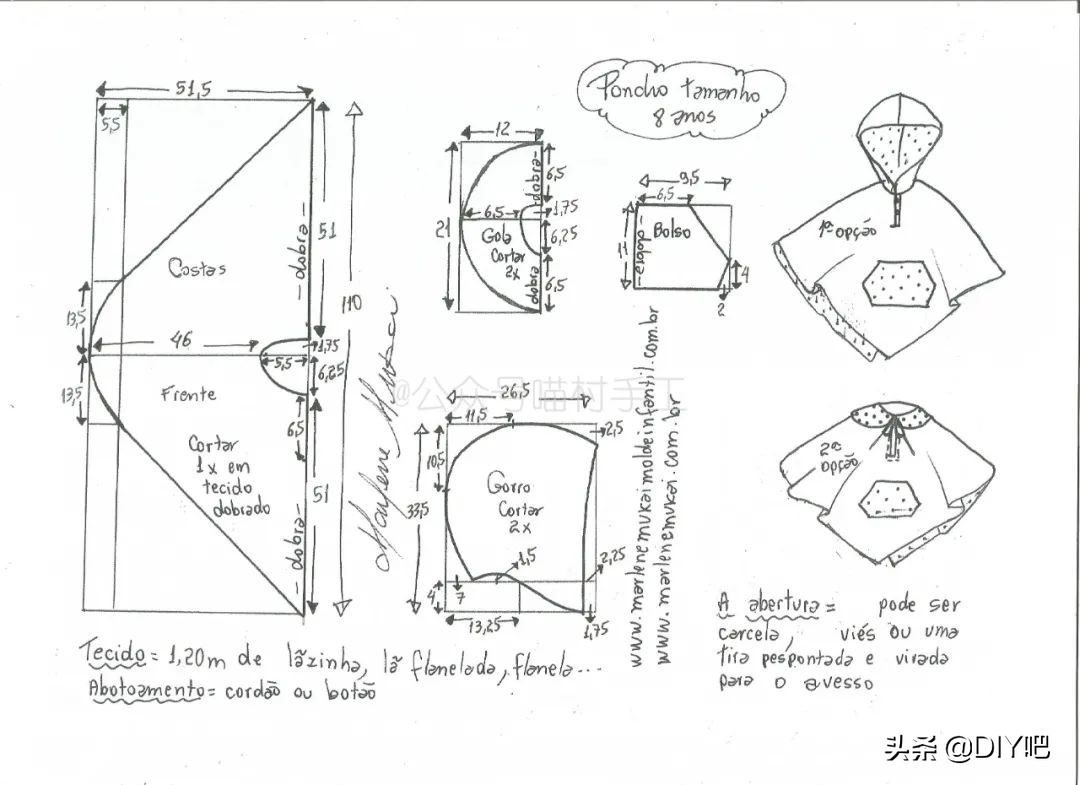 Poncho tamanho
8 anos
51,5
5,5
Costas
dobra
51
110
13,5
46
1,75
5,5
6,25
13,5
Frente
6,5
Cortar
1x em
tecido
dobrado
dobra
51
Marlene Mukai
12
dobra
6,5
21
6,5
1,75
Gola
Cortar
2x
6,25
dobra
6,5
9,5
6,5
11
dobra
Bolso
4
2
1ª opção
@公众号喵村手工
26,5
11,5
2,5
10,5
33,5
Gorro
Cortar
2x
1,5
2,25
4
7
13,25
1,75
www.marlenemukaimoldeinfantil.com.br
www.marlenemukai.com.br
2ª
opção
Tecido = 1,20m de lãzinha, lã flanelada, flanela...
Abotoamento = cordão ou botão
A abertura = pode ser
carcela, viés ou uma
tira pespontada e virada
para o avesso
头条 @DIY吧